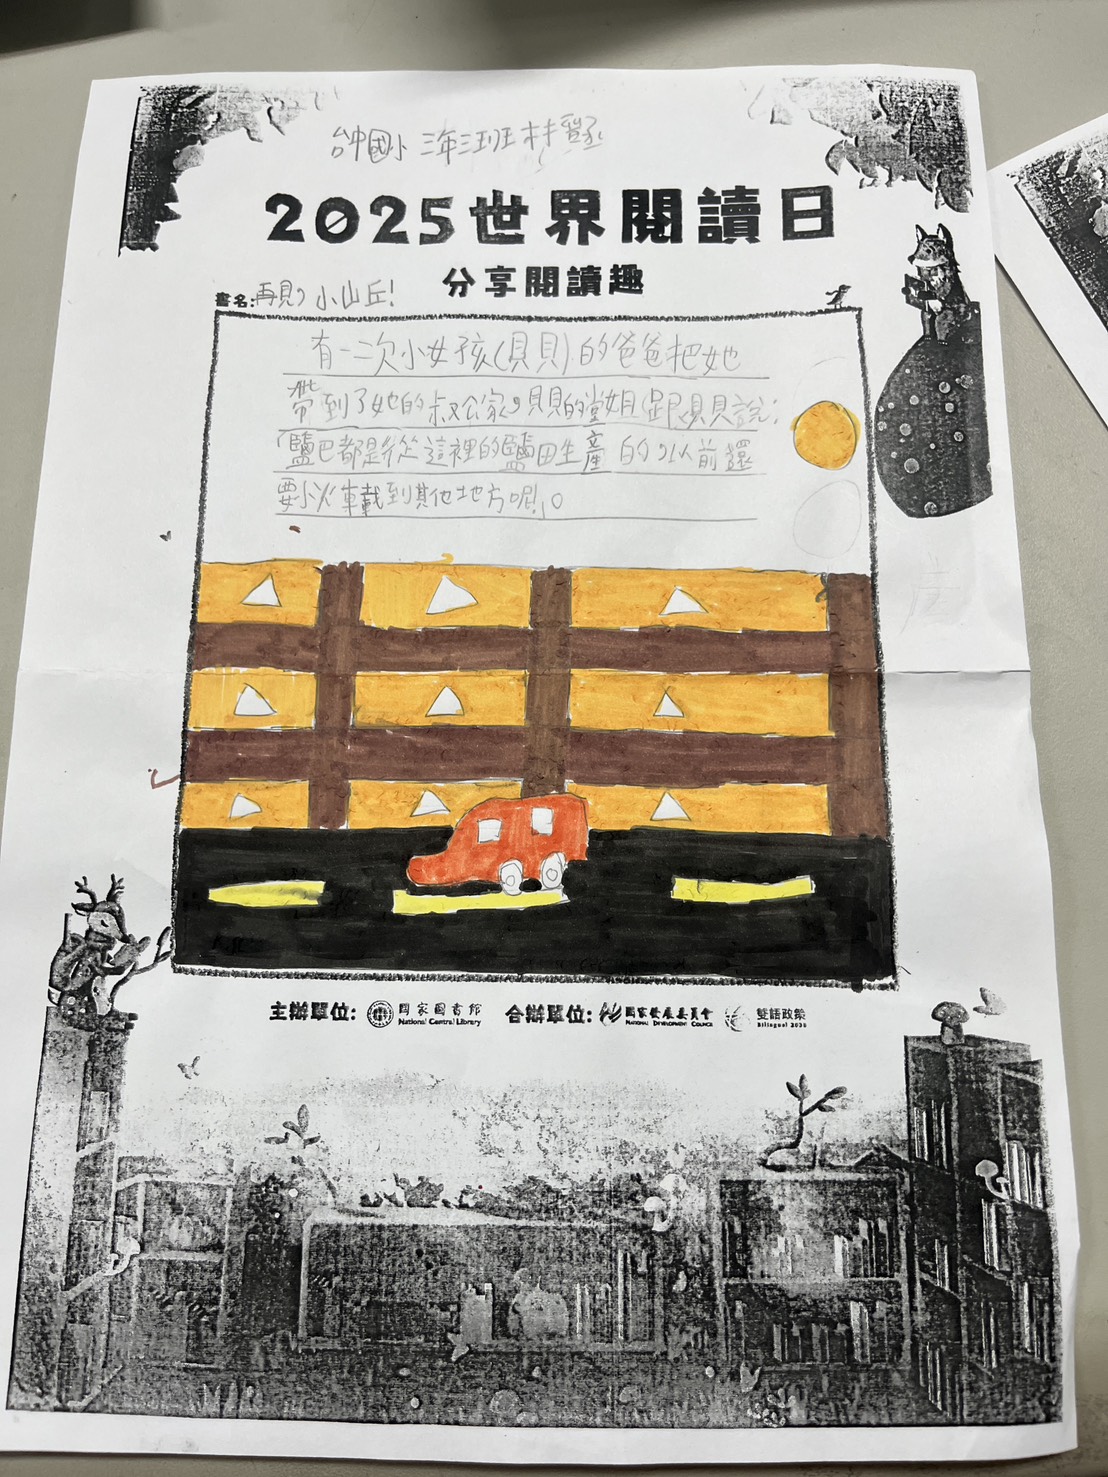 國小 三年三班 林
2025世界閱讀日
分享閱讀趣
書名:再見,小山丘!
有一次小女孩(貝貝)的爸爸把她
帶到了她的叔公家,貝貝的堂姐跟貝貝說:
「鹽巴都是從這裡的鹽田生產的,以前還
要小火車載到其他地方呢!」。
主辦單位: 國家圖書館 合辦單位: 國家發展委員會 雙語政策
National Central Library NATIONAL DEVELOPMENT COUNCIL Bilingual 2030